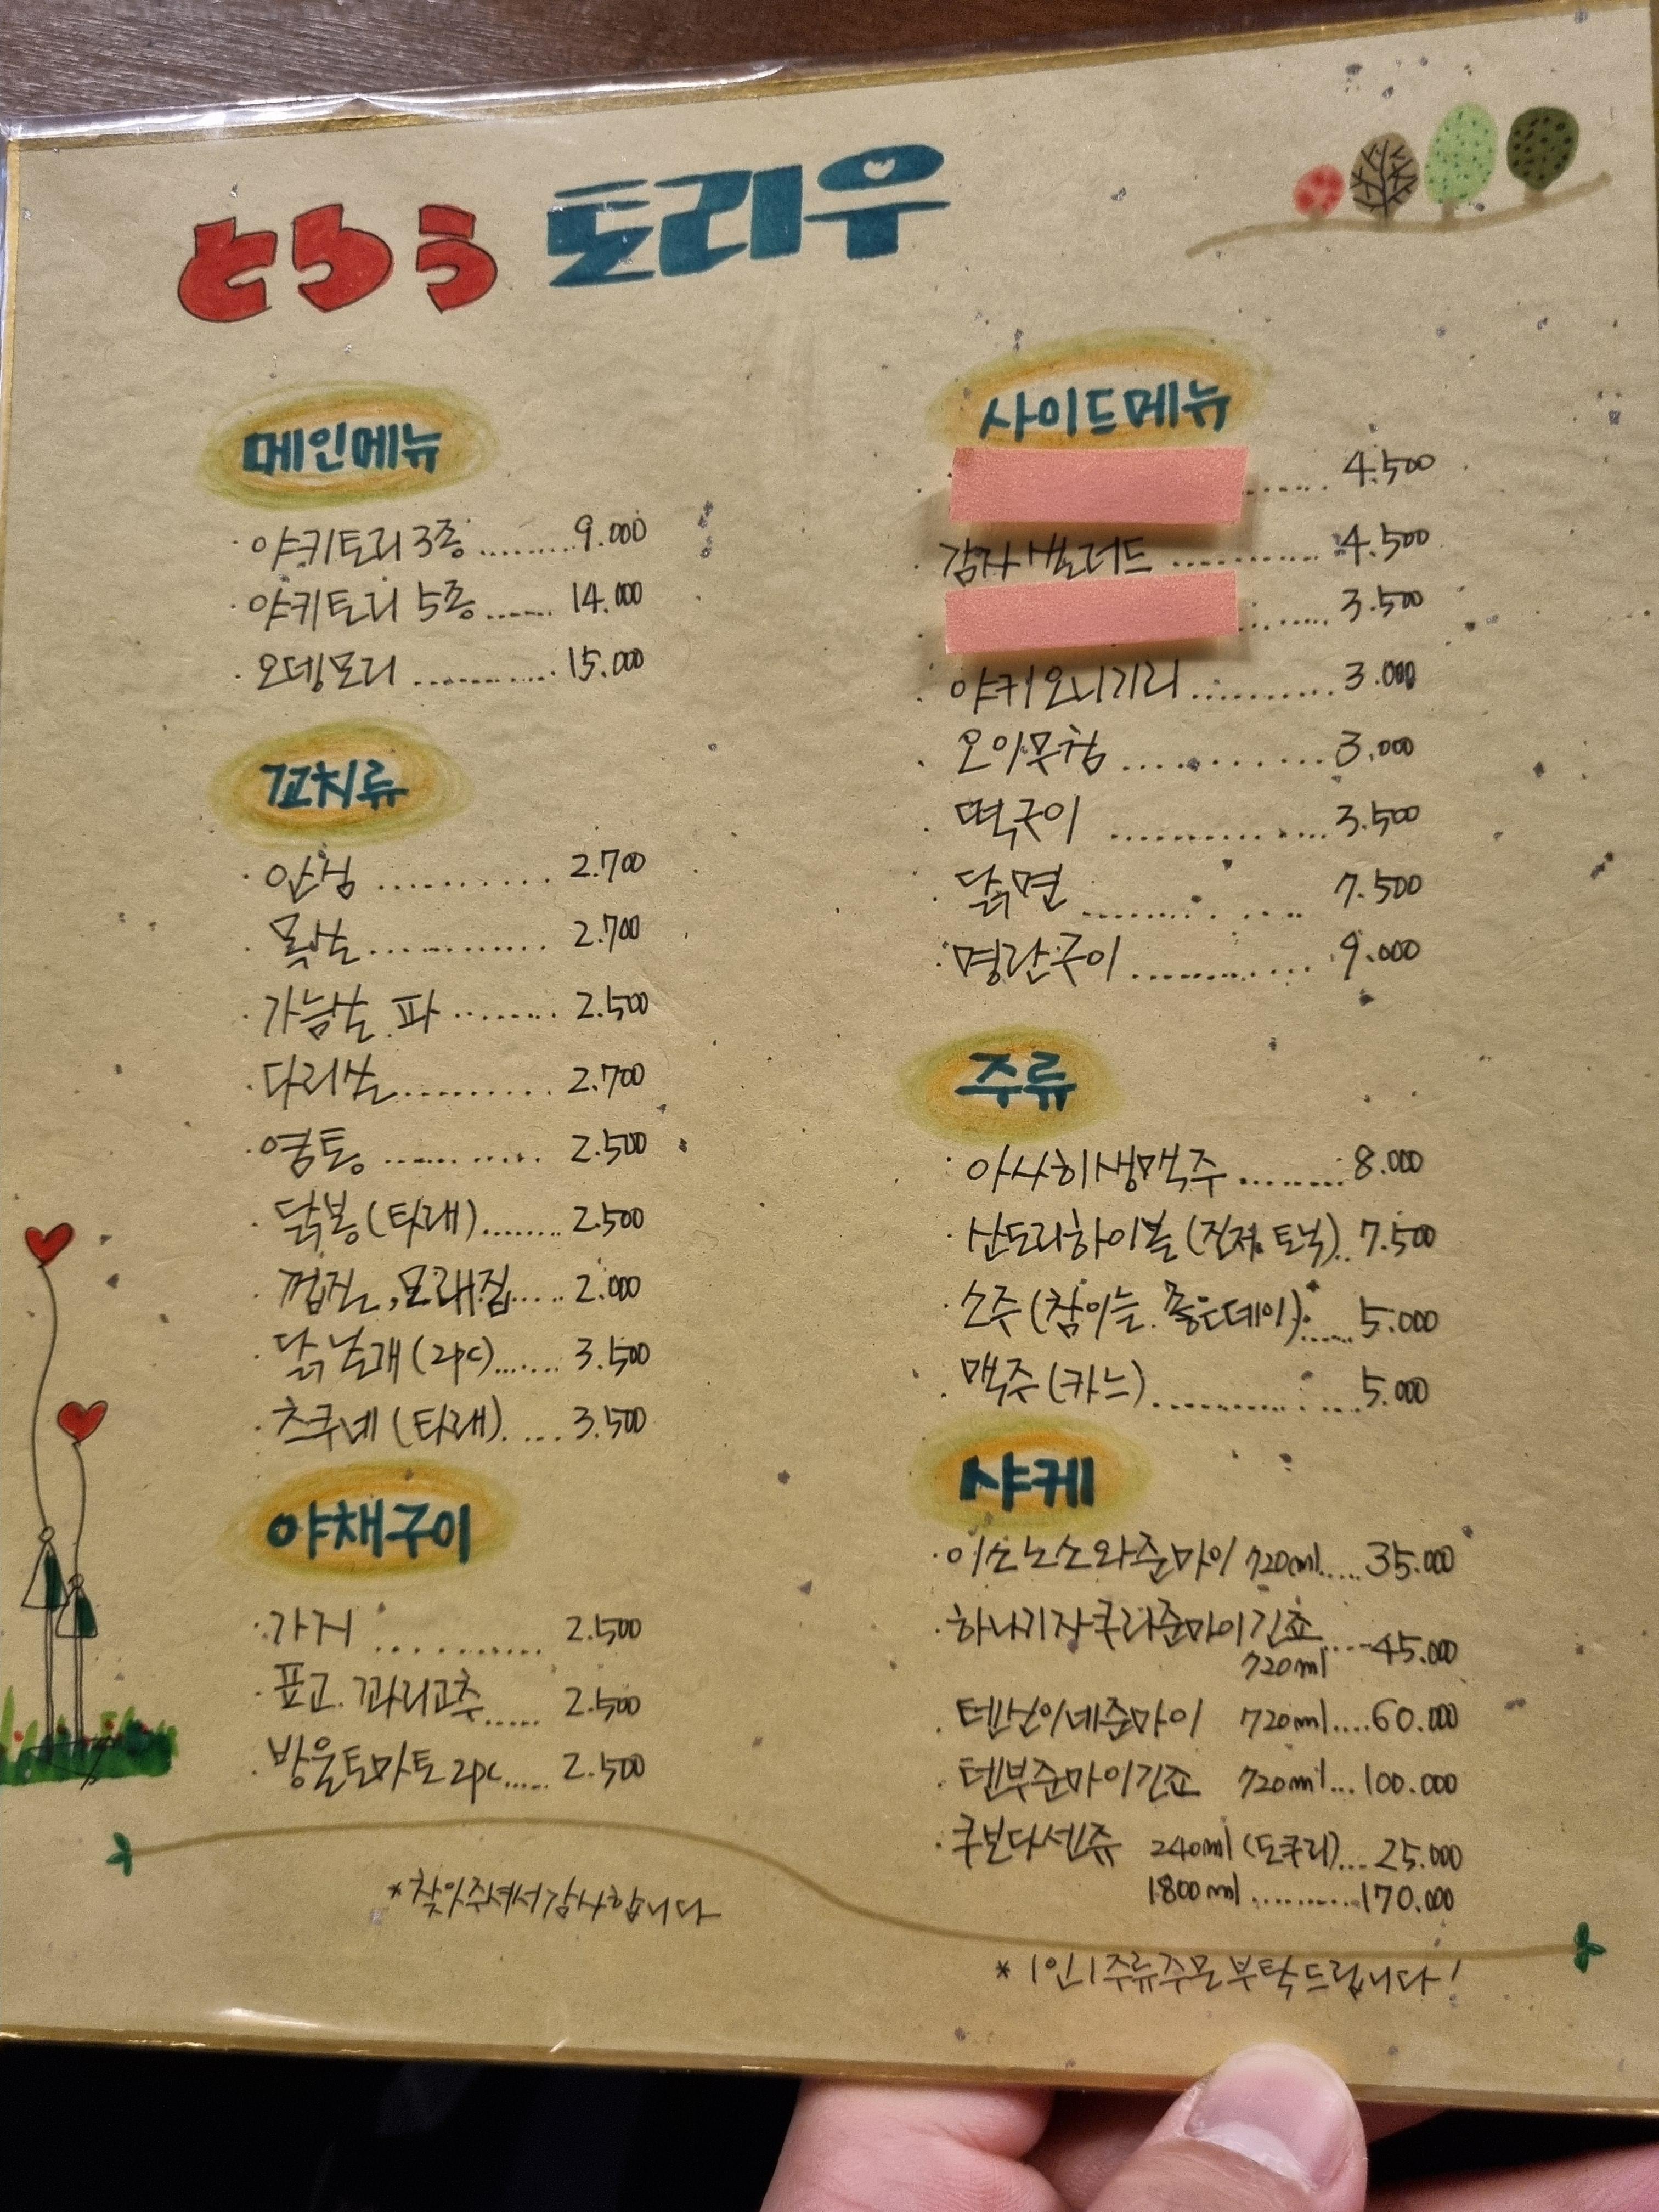 とりう 토리우
메인메뉴
· 야키토리 3종 ......... 9.000
· 야키토리 5종 ...... 14.000
· 오뎅모리 ............ 15.000
꼬치류
· 안심 .......... 2.700
· 목살 ............ 2.700
· 가슴살 파 ........ 2.500
· 다리살 .......... 2.700
· 염통 ........... 2.500
· 닭봉 (타래) ........ 2.500
· 껍질, 모래집 ..... 2.000
· 닭날개 (2pc) ....... 3.500
· 츠쿠네 (타래) .... 3.500
야채구이
· 가지 ........... 2.500
· 표고. 꽈리고추 ..... 2.500
· 방울토마토 2pc ..... 2.500
*찾아주셔서감사합니다
사이드메뉴
· ...... 4.500
· 감자샐러드 ............ 4.500
· ....... 3.500
· 야키오니기리 .......... 3.000
· 오이무침 ........... 3.000
· 떡구이 ............ 3.500
· 닭면 ............ 7.500
· 명란구이 ............ 9.000
주류
· 아사히생맥주 ........ 8.000
· 산토리하이볼 (진저. 토닉) .. 7.500
· 소주 (참이슬. 좋은데이) ..... 5.000
· 맥주 (카스) ............... 5.000
사케
· 이소노사와준마이 720ml ..... 35.000
· 하나기자쿠라준마이긴죠 ..... 45.000
720ml
· 텐 준마이 720ml .... 60.000
· 텐부준마이긴죠 720ml ... 100.000
· 쿠보다센쥬 240ml (도쿠리) ... 25.000
1800ml .......... 170.000
* 1인 1주류주문 부탁드립니다!